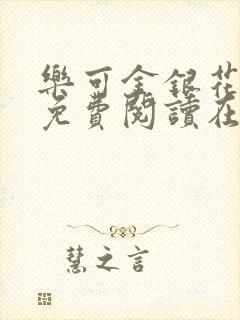 樂可金銀花
免費閱讀在
慧之言